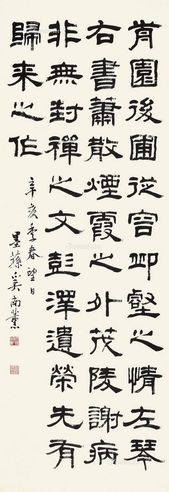 前園後圃從容邱壑之情左琴
右書蕭散煙霞之外茂陵謝病
非無封禪之文彭澤遺榮先有
歸来之作
辛亥季春望日
墨蓀吳南